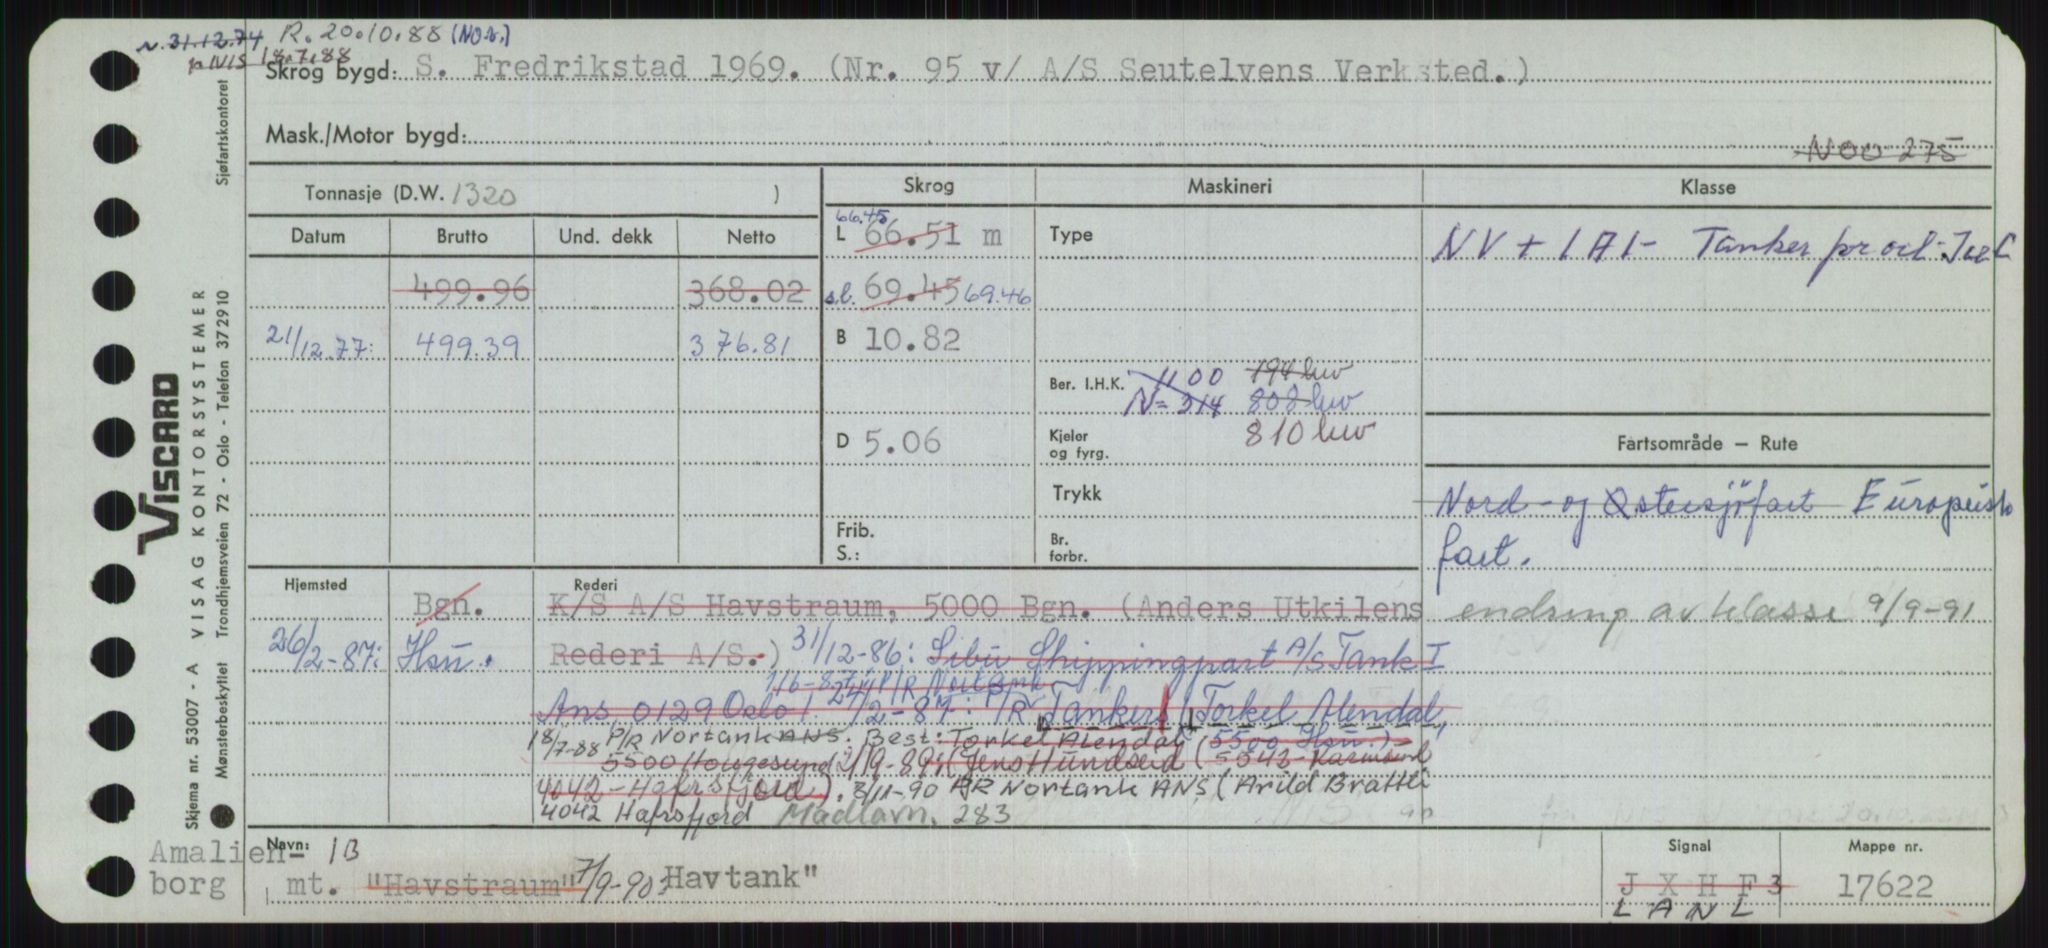 N. 31.12.74 R. 20.10.88 (NOR.)
NIS 18.7.88
Skrog bygd: S. Fredrikstad 1969. (Nr. 95 v/ A/S Seutelvens Verksted.)
Mask./Motor bygd:
NOO 275
Tonnasje (D.W. 1320 )
Skrog
Maskineri
Klasse
Datum Brutto Und. dekk Netto
66.45
L 66.51 m
Type
NV + 1A1- Tanker for
499.96 368.02
s.l. 69.45 69.46
21/12.77: 499.39 376.81
B 10.82
Ber. I.H.K. 1100 194 hw
N= 314 808 hw
D 5.06
Kjeler og fyrg. 810 hw
Fartsområde – Rute
Trykk
Nord- og Østersjøfart Europeisk
fart.
Frib.
S.:
Br.
forbr.
Hjemsted
Rederi
Bgn. K/S A/S Havstraum, 5000 Bgn. (Anders Utkilens
endring av klasse 9/9-91
26/2-87: Hsu. Rederi A/S.) 31/12-86: Sibu Shippingpart A/S Tank I
1/6-87: P/R Nortank
Ans, 0129 Oslo 1. 24/2-87: P/R Tankers (Torkel Alendal,
18/7-88 P/R Nortank ANS. Best: Torkel Alendal (5500 Hsu.)
5500 Haugesund 21/9-89: (Jens Hundseid (5543-Karmsund
4042-Hafrsfjord). 8/11-90 P/R Nortank ANS (Arild Brattli
4042 Hafrsfjord Madlavn. 283
Navn:
Amalien- 1B
borg
mt. "Havstraum" 7/9-90: Havtank"
Signal
J X H F 3
L A N L
Mappe nr.
17622
Sjøfartskontoret
VISCARD
VISAG KONTORSYSTEMER
Trondhjemsveien 72 - Oslo - Telefon 372910
Skjema nr. 53007 - A
Mønsterbeskyttet